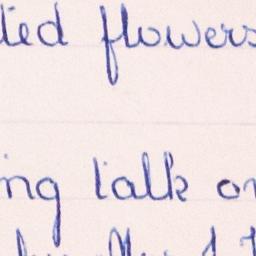 ted flowers
ng talk on